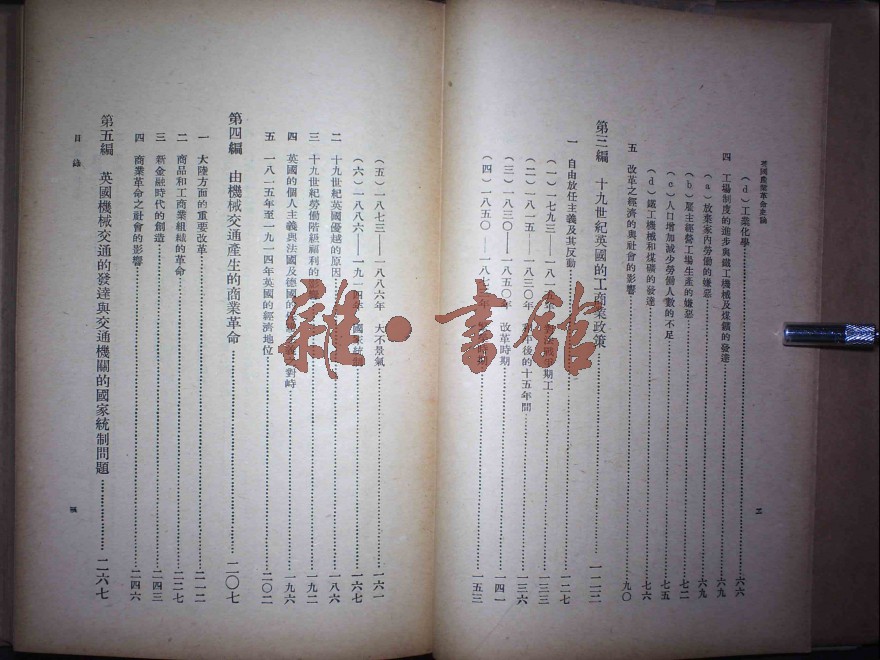 英國產業革命史論
（d）工業化學……六六
四 工場制度的進步與鐵工機械及煤鑛的發達……六九
（a）放棄家內勞働的嫌惡……六九
（b）雇主經營工場生產的嫌惡……七二
（c）人口增加減少勞働人數的不足……七五
（d）鐵工機械和煤礦的發達……七六
五 改革之經濟的與社會的影響……九〇
第三編 十九世紀英國的工商業政策……一二三
一 自由放任主義及其反動……一二七
（一）一七九三——一八一五年
期工……一三三
（二）一八一五——一八三〇年
後的十五年間……一三六
（三）一八三〇——一八五〇年 改革時期……一四一
（四）一八五〇——一八七三年
……一五三
（五）一八七三——一八八六年 大不景氣……一六一
（六）一八八六——一九一四年 國家統制……一六七
二 十九世紀英國優越的原因……一八六
三 十九世紀勞働階級福利的影響……一九二
四 英國的個人主義與法國及德國的
對峙……一九六
五 一八一五年至一九一四年英國的經濟地位……二〇二
第四編 由機械交通產生的商業革命……二〇七
一 大陸方面的重要改革……二一二
二 商品和工商業組織的革命……二二七
三 新金融時代的創造……二四三
四 商業革命之社會的影響……二四六
第五編 英國機械交通的發達與交通機關的國家統制問題……二六七
目錄
雜·書館